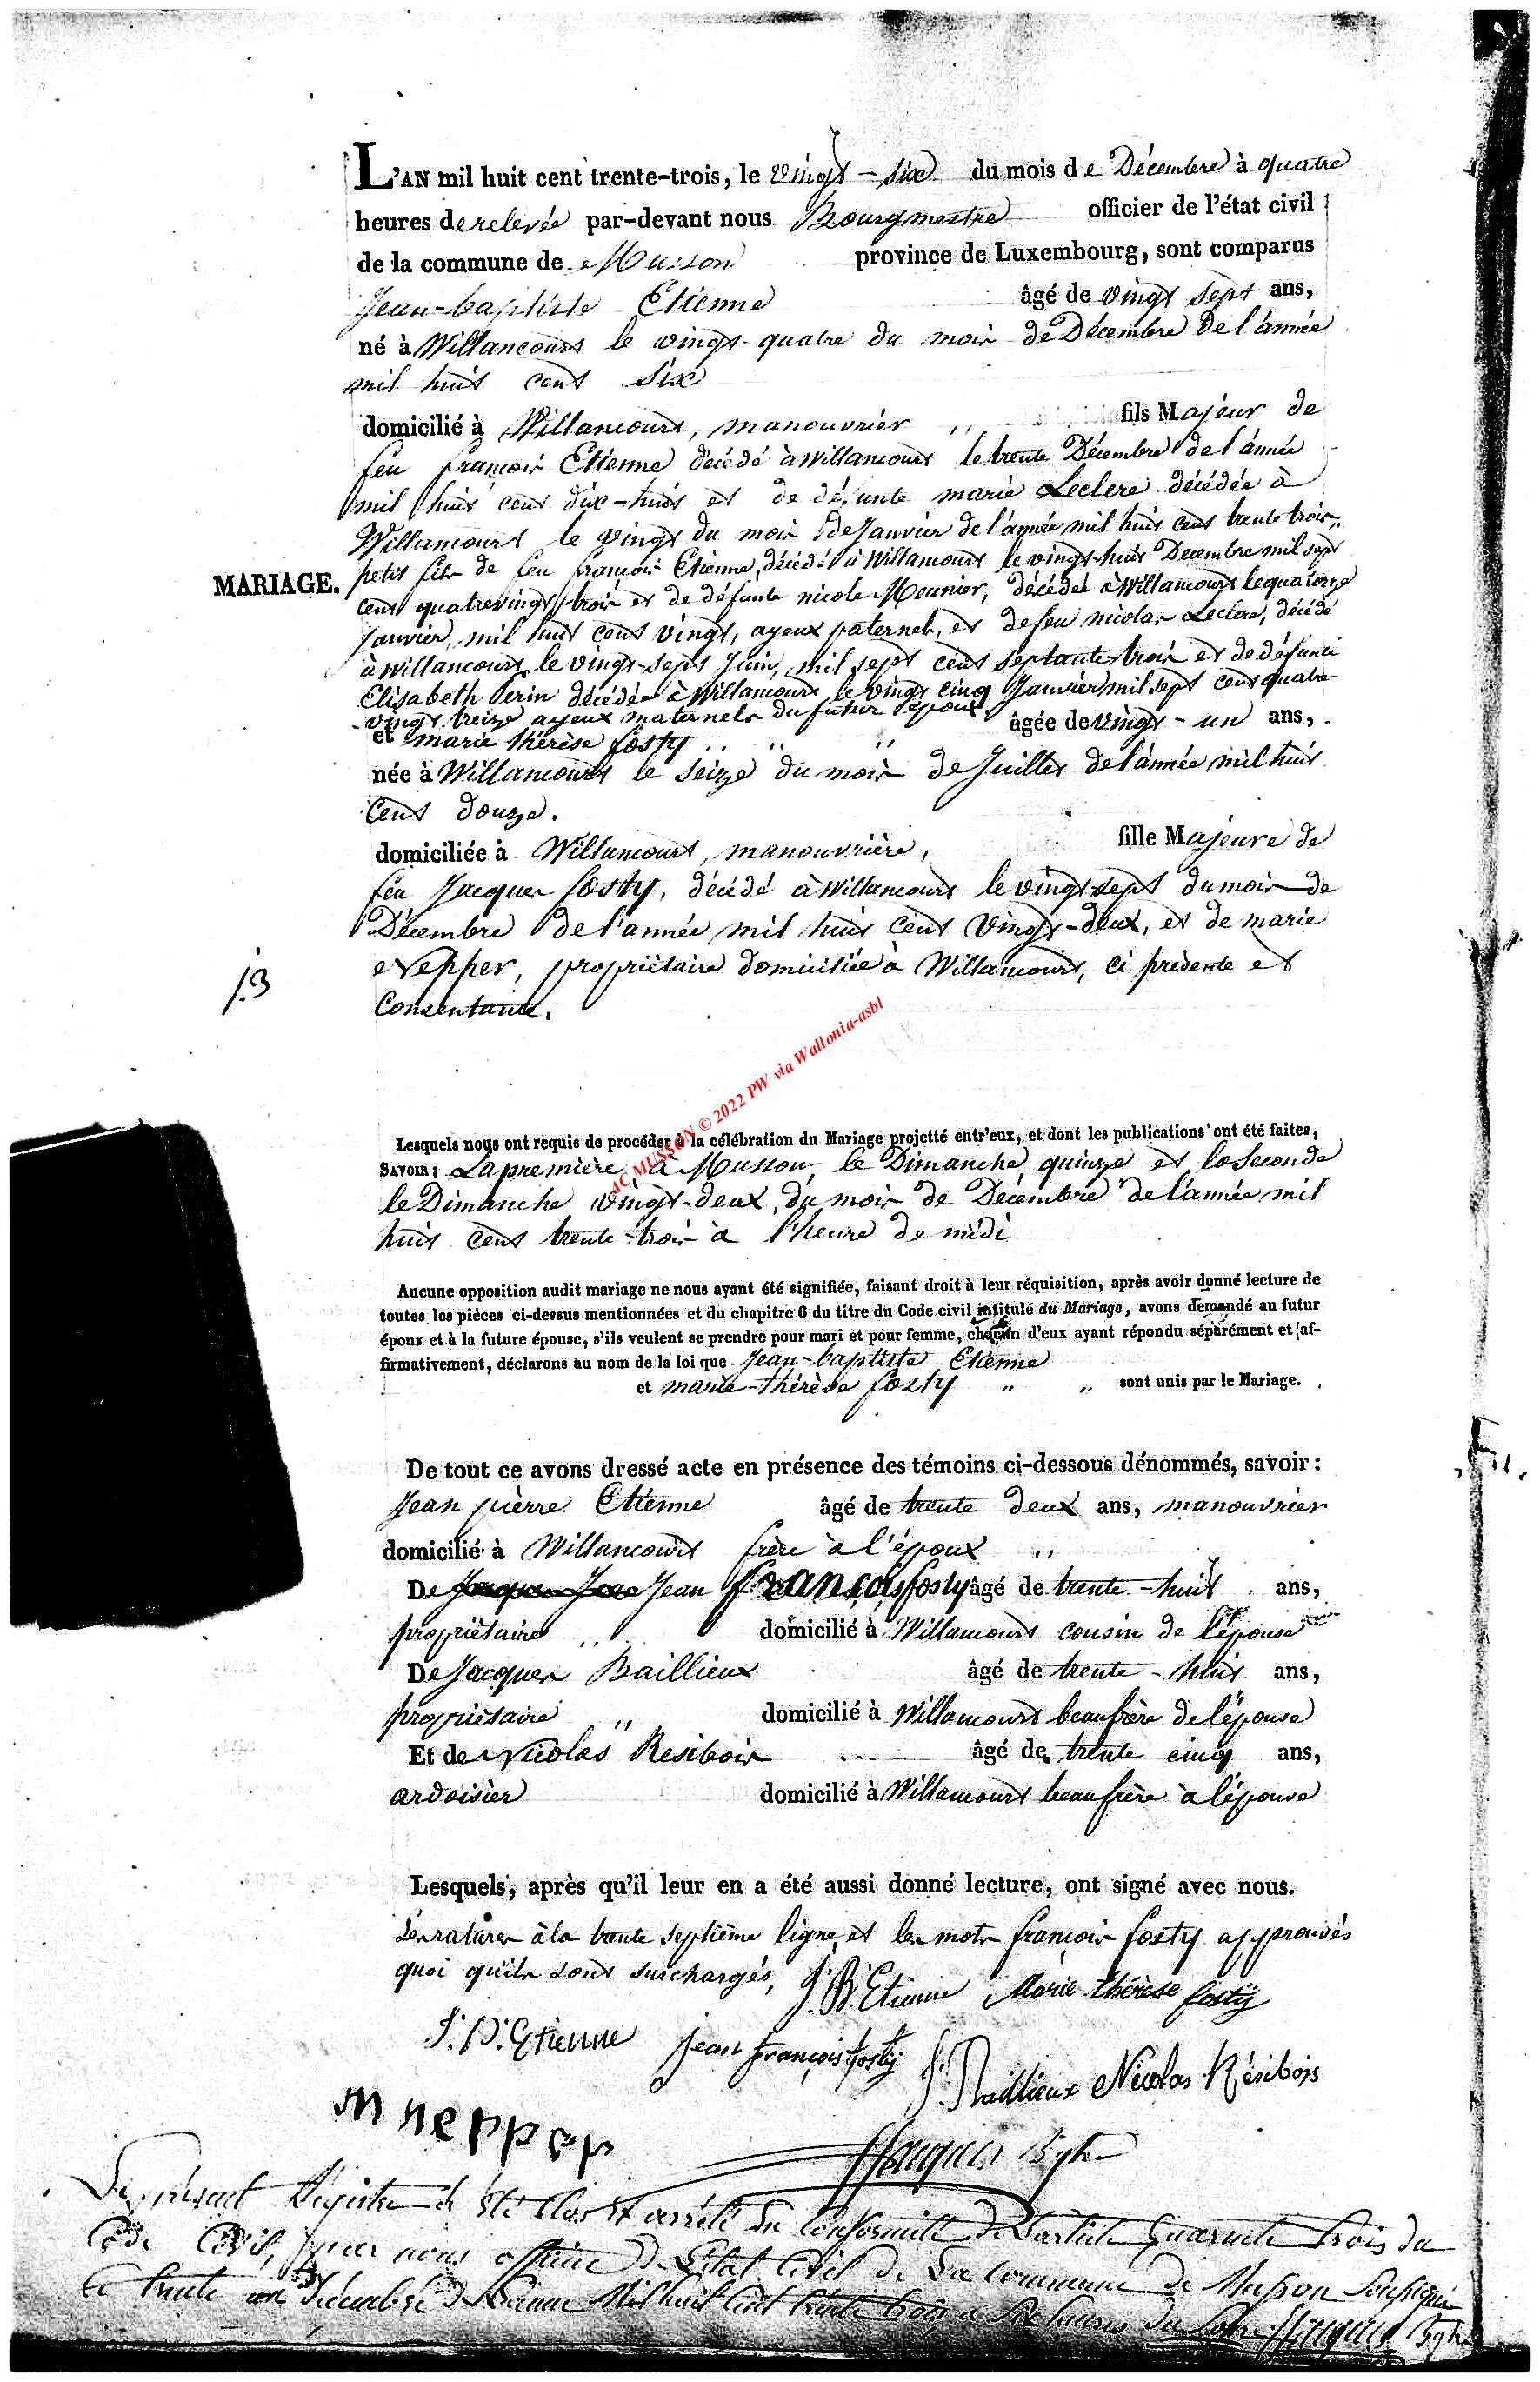 L'AN mil huit cent trente-trois, le vingt-six du mois de Décembre à quatre
heures de relevée par-devant nous Bourgmestre officier de l'état civil
de la commune de Musson province de Luxembourg, sont comparus
Jean-baptiste Etienne âgé de vingt sept ans,
né à Willancourt le vingt-quatre du mois de Décembre de l'année
mil huit cent six
domicilié à Willancourt, manouvrier ,, fils Majeur de
feu françois Etienne décédé à Willancourt le trente Décembre de l'année
mil huit cent dix-huit et de défunte marie Leclere décédée à
Willancourt le vingt du mois de Janvier de l'année mil huit cent trente trois,
MARIAGE.
petit fils de feu françois Etienne, décédé à Willancourt le vingt-huit Decembre mil sept
cent quatrevingt trois et de défunte nicole Meunier, décédée à Willancourt le quatorze
Janvier, mil huit cent vingt, ayeux paternels, et de feu nicolas Leclere, décédé
à Willancourt, le vingt-sept Juin, mil sept cent septante-trois et de défunte
Elisabeth Perin décédée à Willancourt le vingt cinq Janvier mil sept cent quatre-
vingt treize ayeux maternels du futur époux,
et marie thérèse fosty ,, ,, ,, âgée de vingt-un ans,
née à Willancourt le seize du mois de Juillet de l'année mil huit
cent douze.
domiciliée à Willancourt, manouvrière, fille Majeure de
feu Jacques fosty, décédé à Willancourt le vingt-sept du mois de
Décembre de l'année mil huit cent vingt-deux, et de marie
Nepper, propriétaire domiciliée à Willancourt, ci présente et
Consentante.
13
AC MUSSON © 2022 PW via Wallonia-asbl
Lesquels nous ont requis de procéder à la célébration du Mariage projetté entr'eux, et dont les publications ont été faites,
SAVOIR: La première, à Musson, le Dimanche quinze et la Seconde
le Dimanche vingt-deux, du mois de Décembre de l'année mil
huit cent trente-trois à l'heure de midi
Aucune opposition audit mariage ne nous ayant été signifiée, faisant droit à leur réquisition, après avoir donné lecture de
toutes les pièces ci-dessus mentionnées et du chapitre 6 du titre du Code civil intitulé du Mariage, avons demandé au futur
époux et à la future épouse, s'ils veulent se prendre pour mari et pour femme, chacun d'eux ayant répondu séparément et af-
firmativement, déclarons au nom de la loi que Jean-baptiste Etienne
et marie-thérèse fosty ,, ,, sont unis par le Mariage.
De tout ce avons dressé acte en présence des témoins ci-dessous dénommés, savoir:
Jean pièrre Etienne âgé de trente deux ans, manouvrier
domicilié à Willancourt frère à l'époux ,,
De Jean françois fosty âgé de trente-huit ans,
propriétaire ,, domicilié à Willancourt cousin de l'épouse
De Jacques Baillieux âgé de trente-huit ans,
propriétaire ,, domicilié à Willancourt beaufrère de l'épouse
Et de Nicolas Resibois âgé de trente cinq ans,
ardoisier domicilié à Willancourt beaufrère à l'épouse
Lesquels, après qu'il leur en a été aussi donné lecture, ont signé avec nous.
Les ratures à la trente septième ligne, et les mots françois fosty approuvés
quoi qu'ils sont surchargés,
J. B. Etienne Marie thérèse fosty
J. P. Etienne jean françois fosty J. Baillieux Nicolas Résibois
m nepper
Jacques Bgtre
Le présent Régistre a été Clos et arrêté En Conformité de l'article Quarante trois du
Code Civil, par nous officier de l'état Civil de La Commune de Musson Soussigné
Le trente un Décembre de L'année Mil huit Cent trente trois à Six heures du Soir Jacques Bgtre